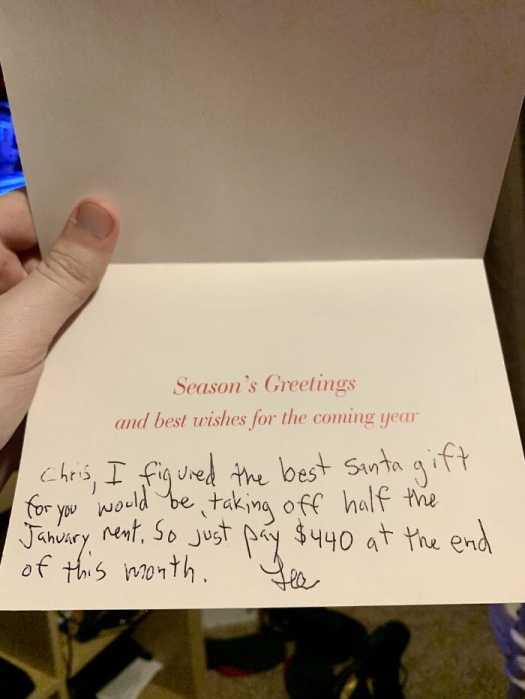 Season's Greetings
and best wishes for the coming year
Chris, I figured the best Santa gift
for you would be, taking off half the
January rent. So just pay $440 at the end
of this month. Lea